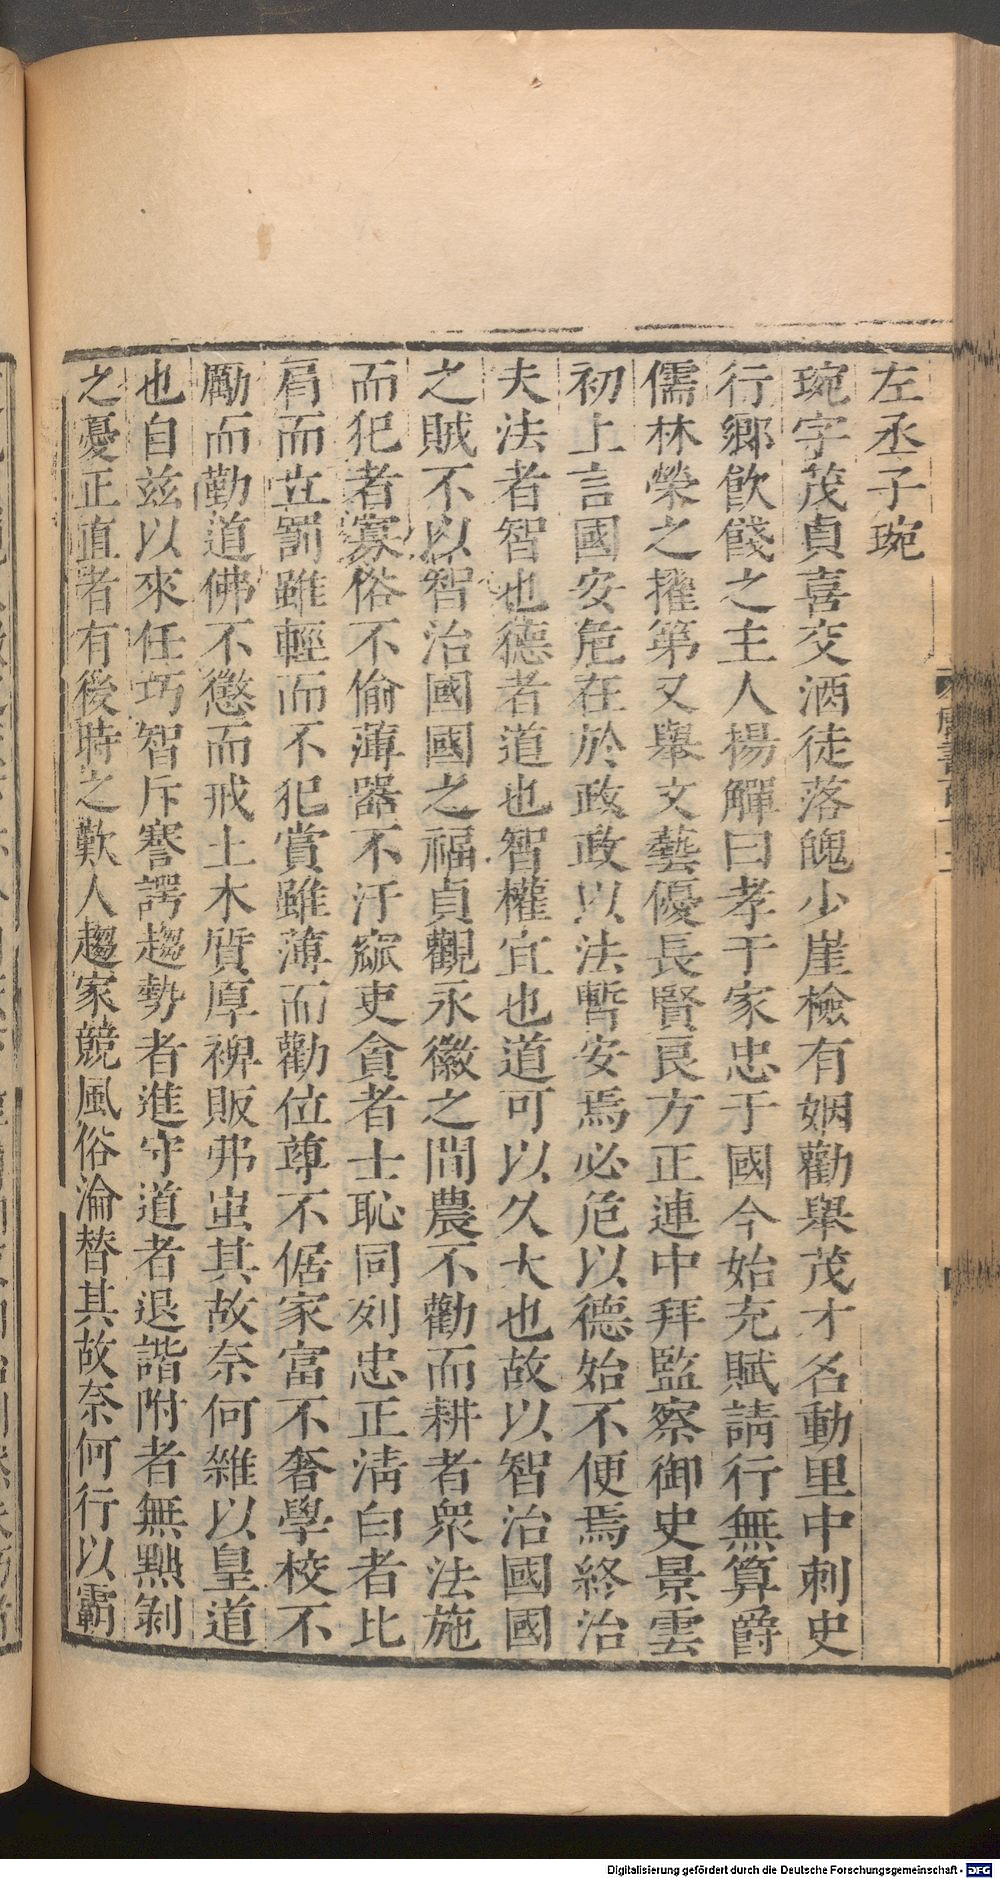 左丞子琬
琬字茂貞喜交酒徒落魄少崖檢有姻勸舉茂才名動里中刺史
行鄉飲餞之主人楊觶曰孝于家忠于國今始充賦請行無算爵
儒林榮之擢第又舉文藝優長賢良方正連中拜監察御史景雲
初上言國安危在於政政以法暫安焉必危以德始不便焉終治
夫法者智也德者道也智權宜也道可以久大也故以智治國國
之賊不以智治國國之福貞觀永徽之間農不勸而耕者衆法施
而犯者寡俗不偷薄器不汙窳吏貪者士恥同列忠正清白者比
肩而立罰雖輕而不犯賞雖薄而勸位尊不倨家富不奢學校不
勵而勤道佛不懲而戒土木質厚裨販弗蚩其故奈何雜以皇道
也自兹以來任巧智斥謇諤趨勢者進守道者退諧附者無黜剝
之憂正直者有後時之歎人趨家競風俗淪替其故奈何行以霸
Digitalisierung gefördert durch die Deutsche Forschungsgemeinschaft - DFG